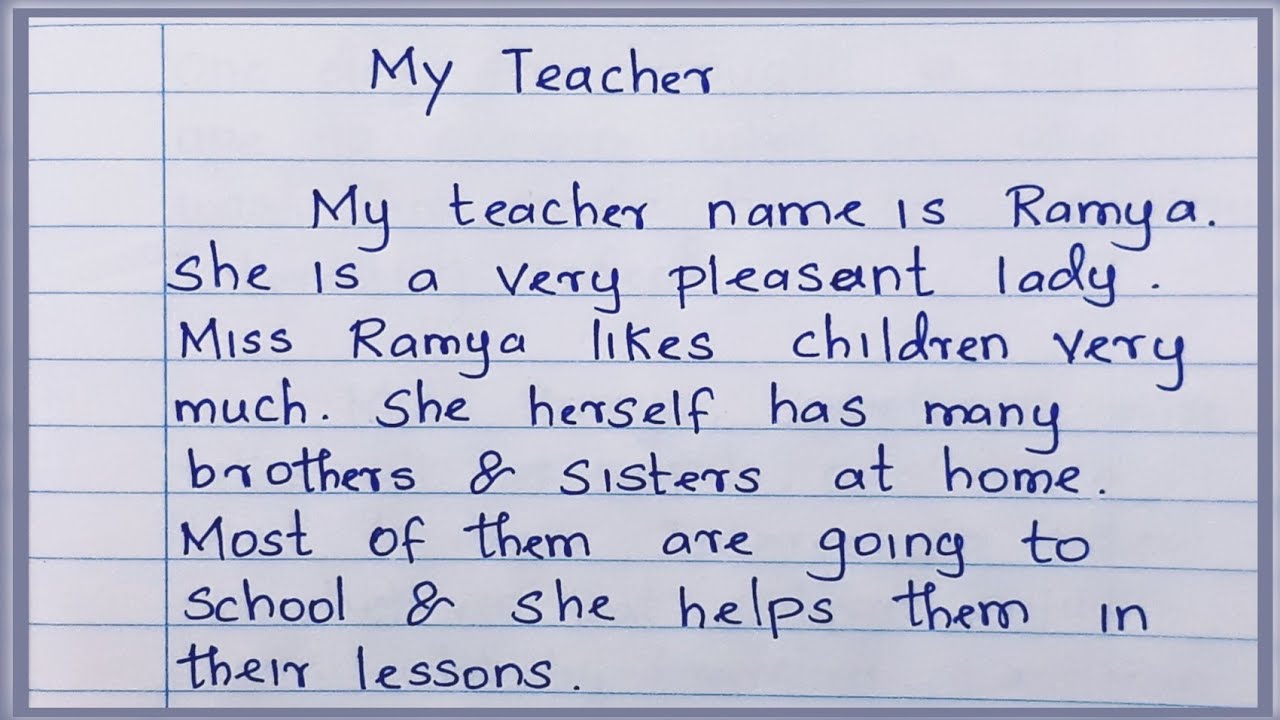 My Teacher
My teacher name is Ramya.
She is a very pleasant lady.
Miss Ramya likes children very
much. She herself has many
brothers & sisters at home.
Most of them are going to
school & she helps them in
their lessons.